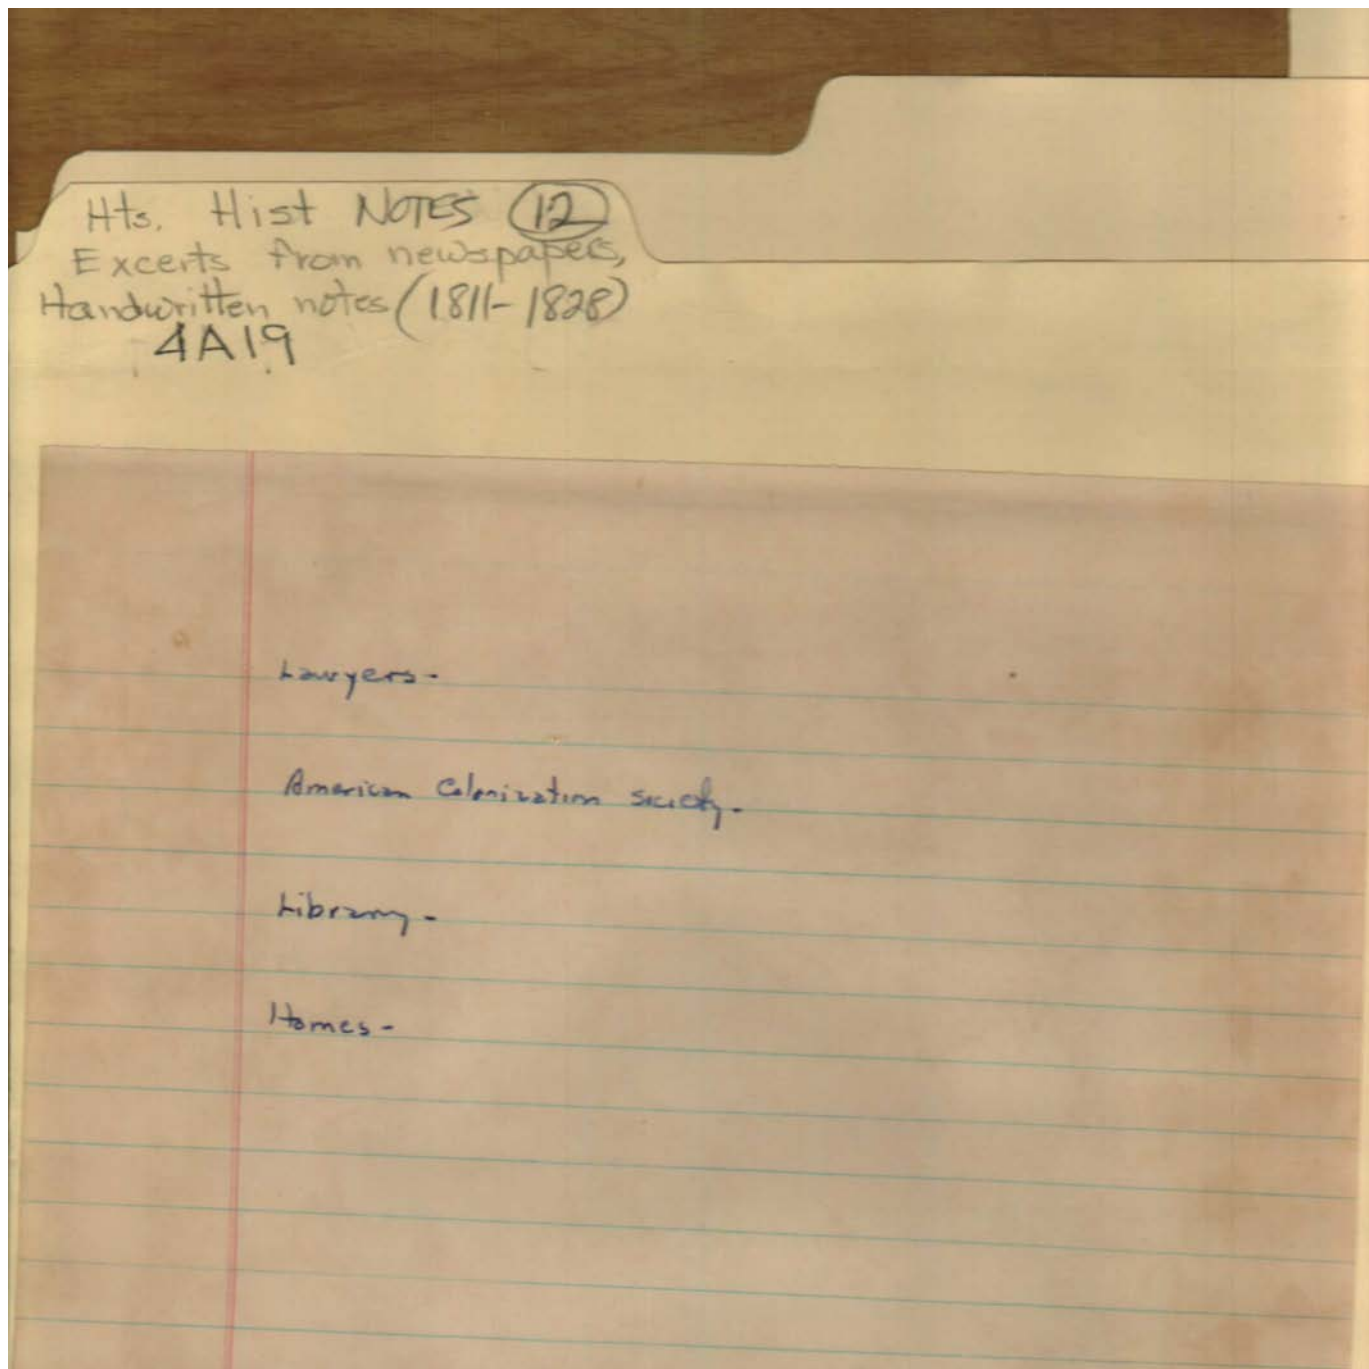 Hts. Hist NOTES 12
Excerts from newspapers,
Handwritten notes (1811-1828)
4A19
Lawyers-
American Colonization Society.
Library-
Homes-